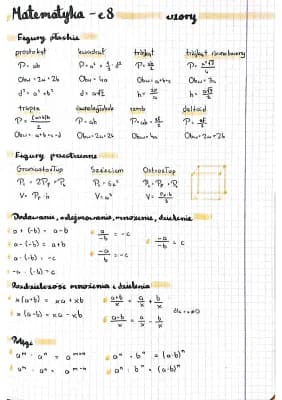 Matematyka - e8 wzory
Figury płaskie
prostokąt kwadrat trójkąt trójkąt równoboczny
P = ab P = a² = ½ · d² P = ah/2 P = a²√3/4
Obw = 2a + 2b Obw = 4a Obw = a+b+c Obw = 3a
d² = a² + b² d = a√2 h = a√3/2
trapez równoległobok romb deltoid
P = (a+b)h/2 P = ah P = ah = ef/2 P = ef/2
Obw = a+b+c+d Obw = 2a+2b Obw = 4a Obw = 2a+2b
Figury przestrzenne
Graniastosłup Sześcian Ostrosłup
V = Pp · h V = a³
Dodawanie, odejmowanie, mnożenie, dzielenie
a + (-b) = a-b
a - (-b) = a+b
a · (-b) = -c
-a · (-b) = c
a/-b = -c
-a/b = -c
-a/-b = c
Rozdzielność mnożenia i dzielenia
x(a+b) = xa + xb
x(a-b) = xa - xb
a+b/x = a/x + b/x
a-b/x = a/x - b/x
Potęgi
aᵐ · aⁿ = aᵐ⁺ⁿ
aᵐ : aⁿ = aᵐ⁻ⁿ
aⁿ · bⁿ = (a·b)ⁿ
aⁿ : bⁿ = (a:b)ⁿ